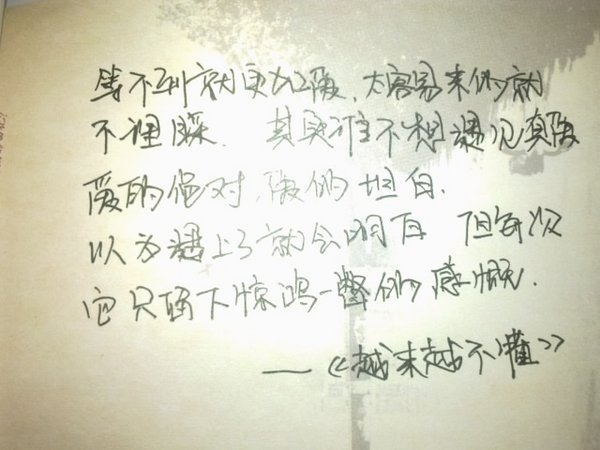 得不到就更加爱.太容易来的就
不理睬. 其实谁不想遇见真爱
爱的绝对,爱的坦白.
以为遇上了就会明白 但每次
它只留下惊鸿一瞥的感慨.
—《越来越不懂》